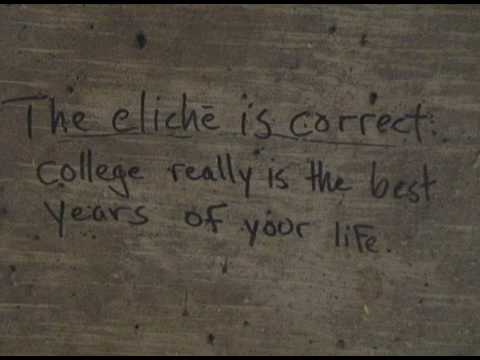 The clichē is correct:
college really is the best
years of your life.